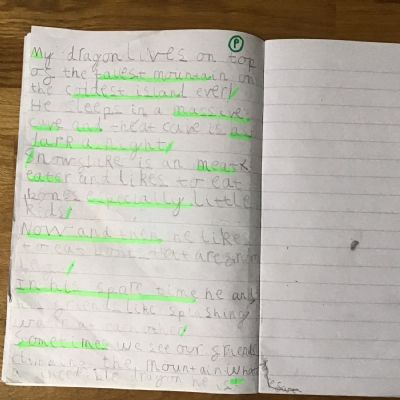 P
My dragon lives on top
of the talest mountain on
the coldest island ever
He sleeps in a massive
cave and that cave is as
dark a night
Snowstike is an meat
eater and likes to eat
bones especially little
kids
Now and then he likes
to eat that are
In his spare time he and
friends like splashing
Sometimes we see our friend
climbing the mountain
dragon he is